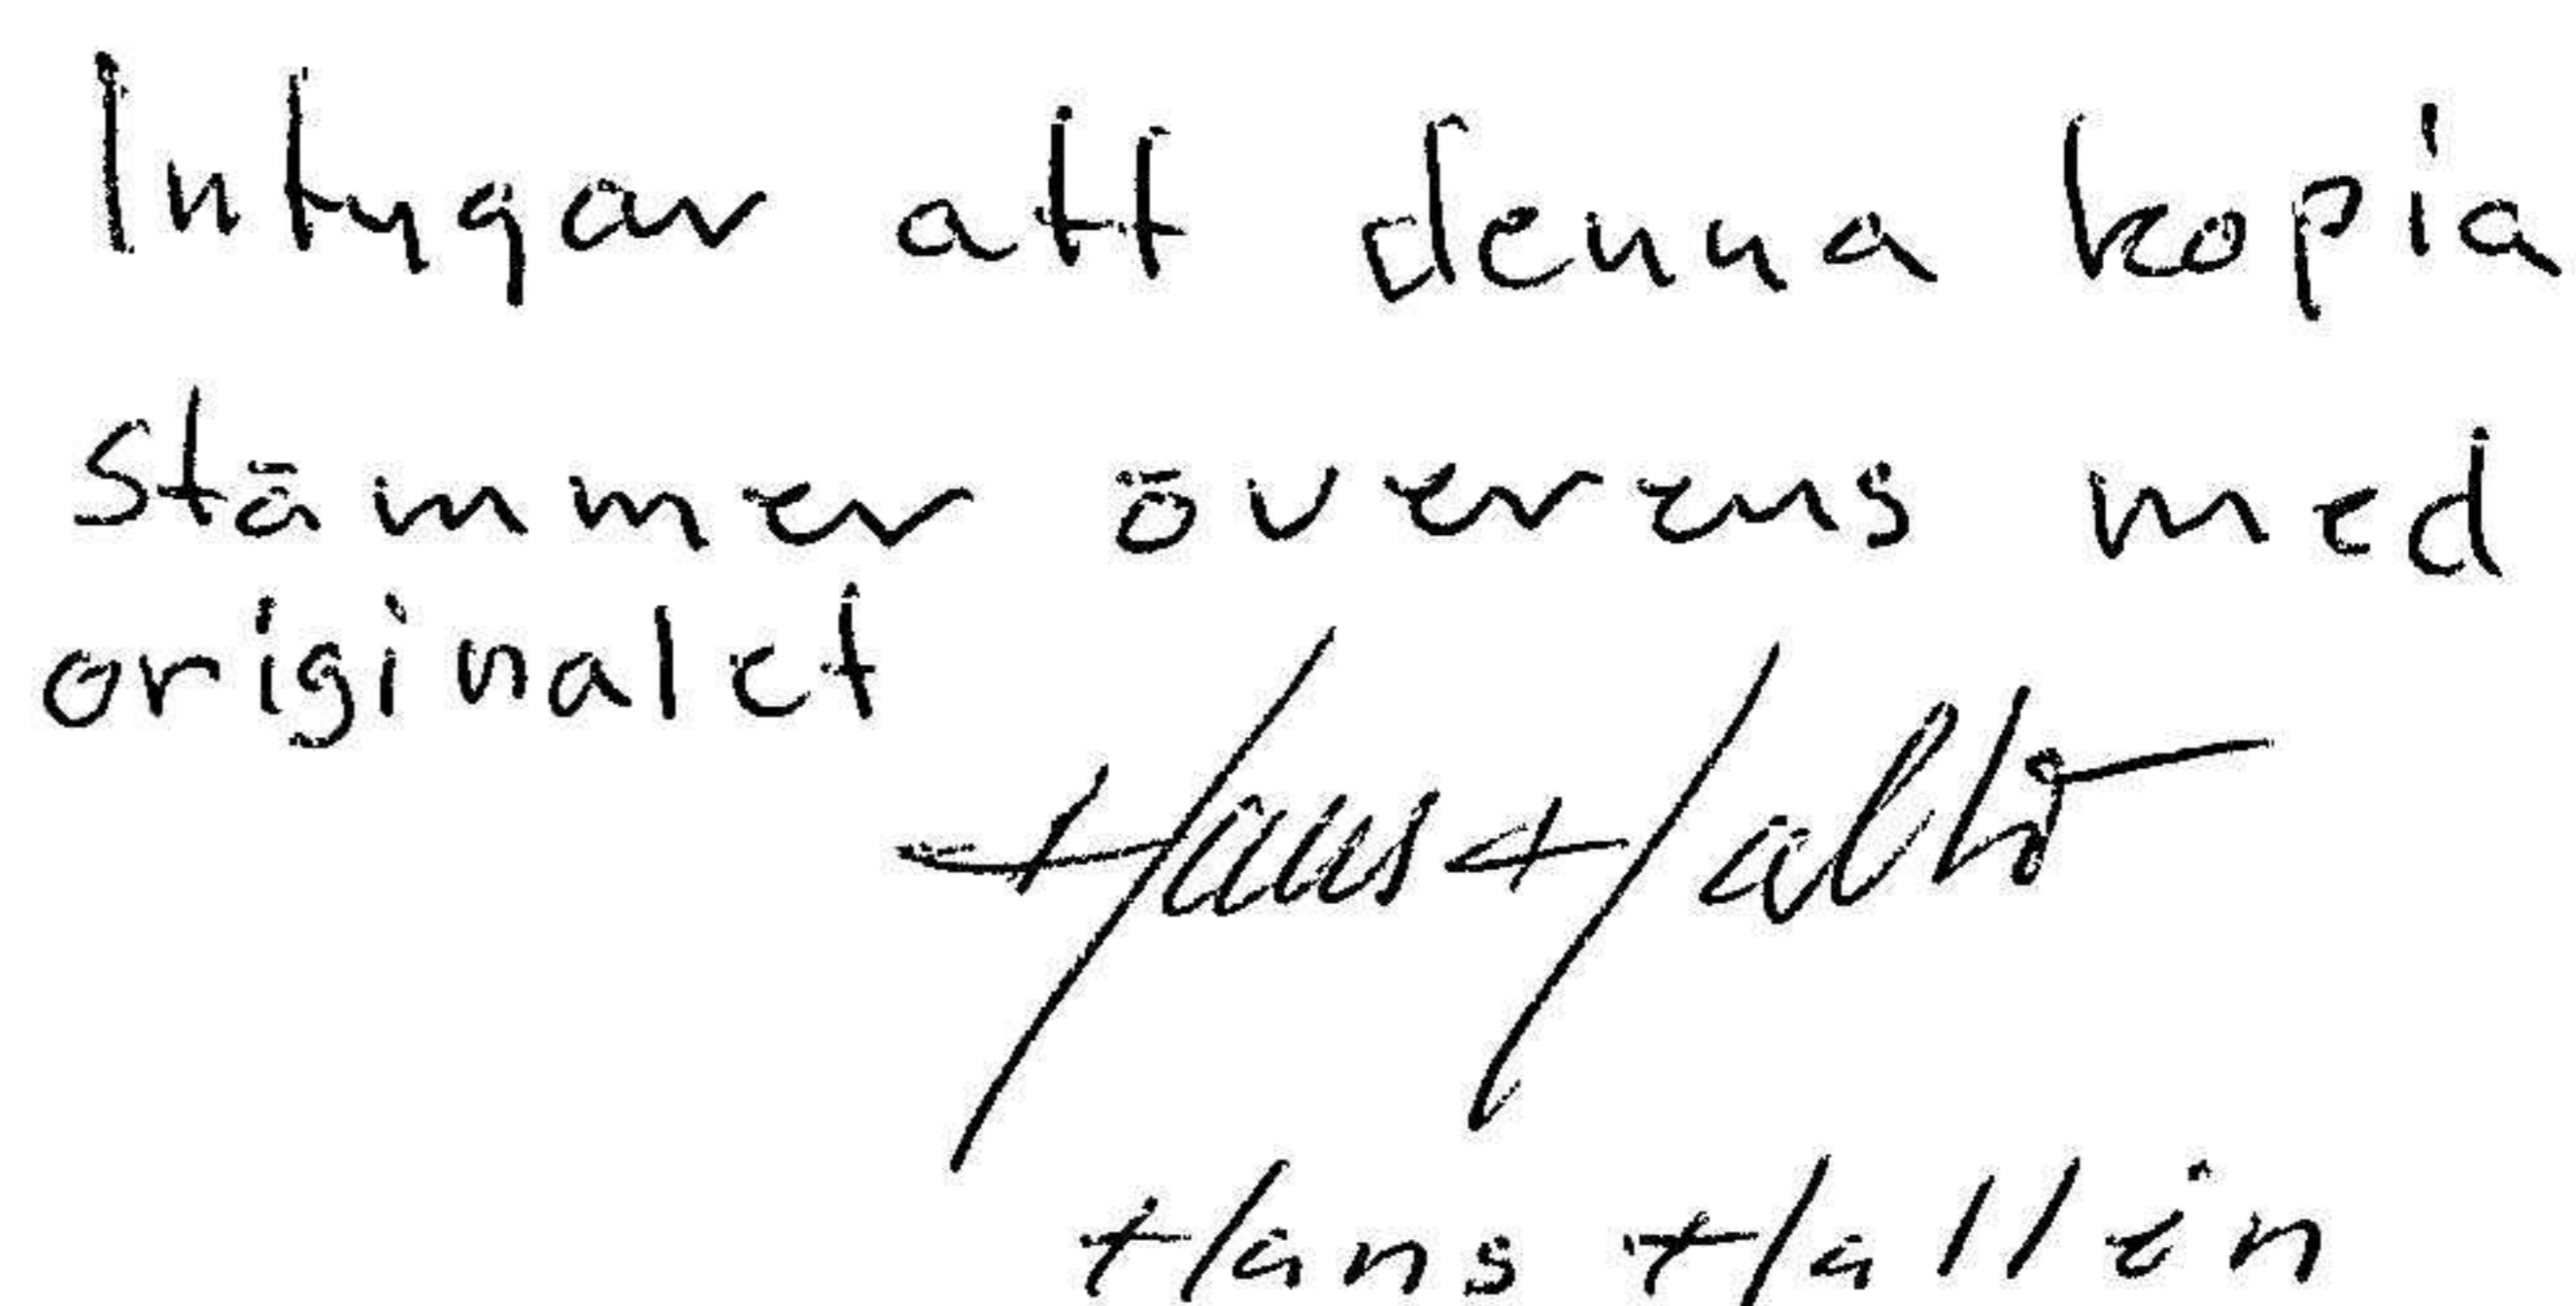 Intygar att denna kopia
stämmer överens med
originalet
Hans Hallén
Hans Hallén